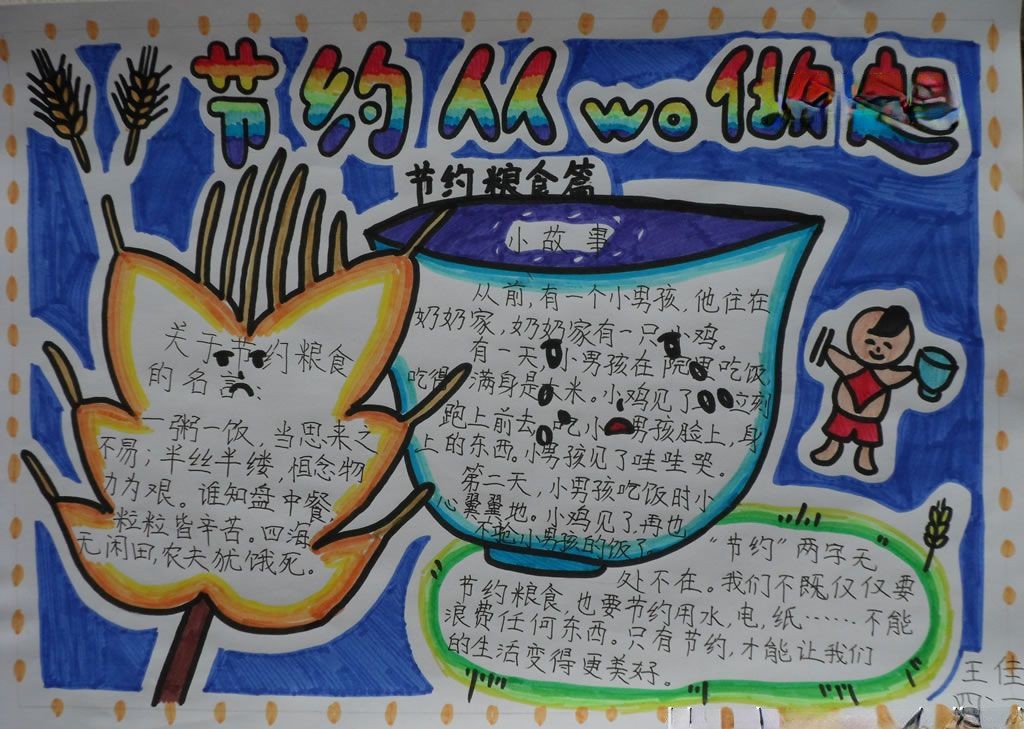 节约从wo做起
节约粮食篇
小故事
从前,有一个小男孩,他住在
奶奶家,奶奶家有一只小鸡。
有一天,小男孩在院里吃饭,
吃得满身是大米。小鸡见了立刻
跑上前去,吃小男孩脸上,身
上的东西。小男孩见了哇哇哭。
第二天,小男孩吃饭时小
心翼翼地。小鸡见了再也
不抢小男孩的饭了。
关于节约粮食
的名言:
一粥一饭,当思来之
不易;半丝半缕,恒念物
力为艰。谁知盘中餐,
粒粒皆辛苦。四海
无闲田,农夫犹饿死。
“节约”两字无
处不在。我们不既仅仅要
节约粮食,也要节约用水,电,纸……不能
浪费任何东西。只有节约,才能让我们
的生活变得更美好。
王佳